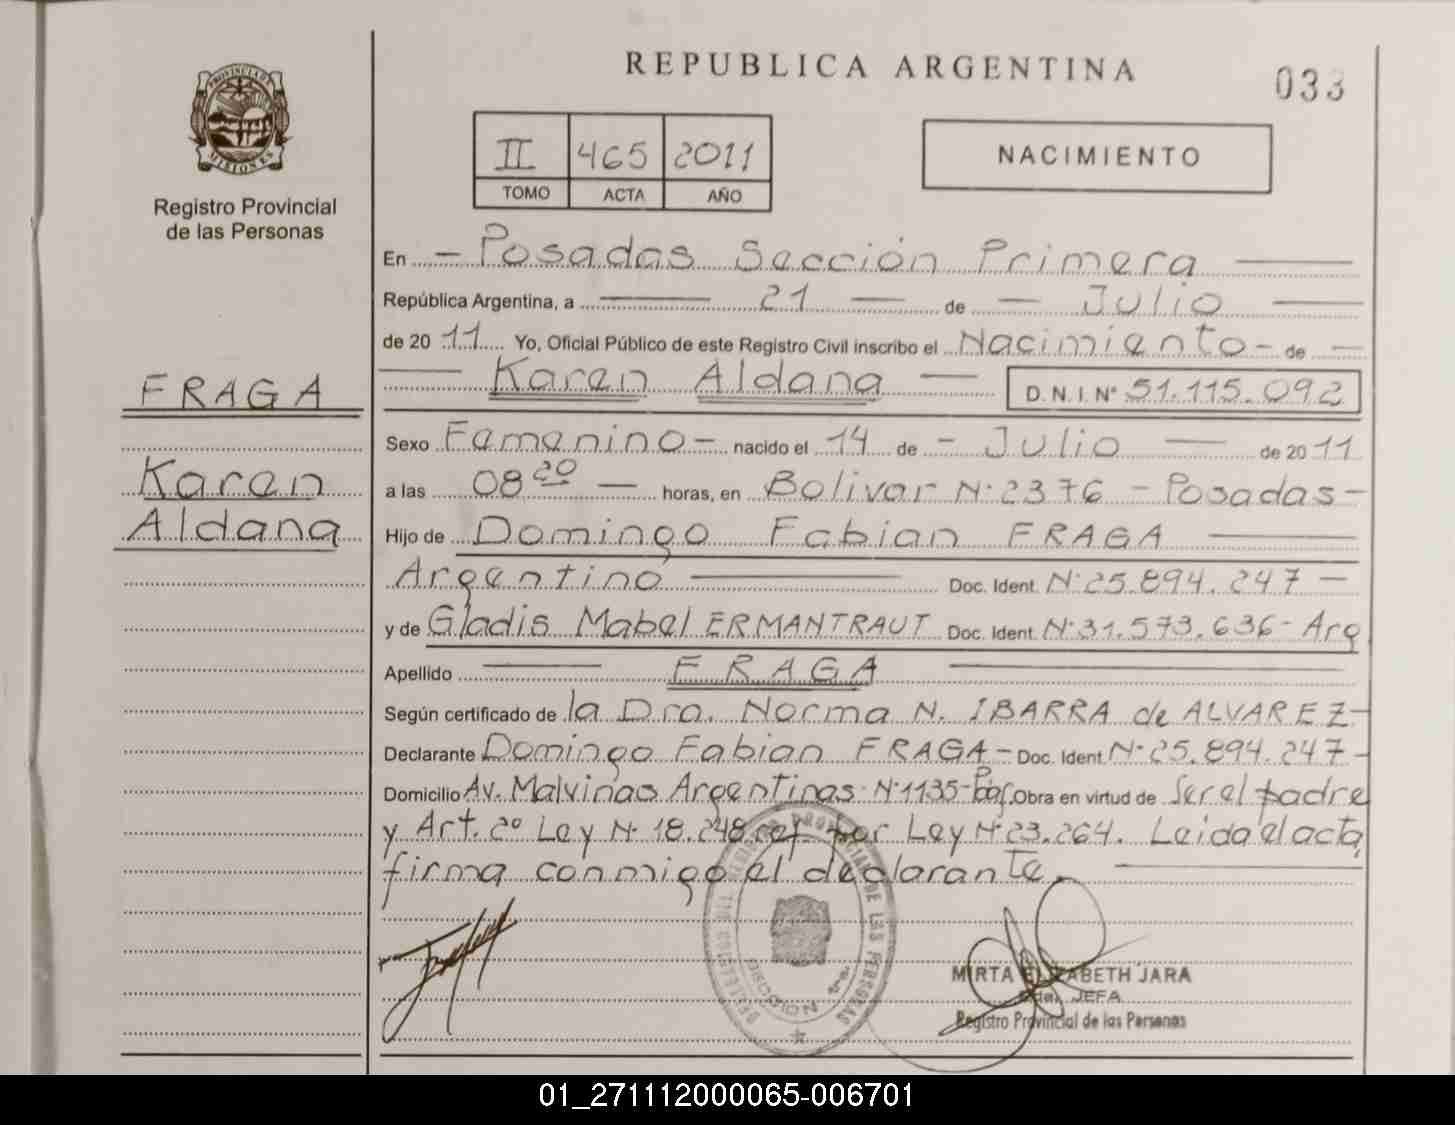 REPUBLICA ARGENTINA
033
PROVINCIA DE MISIONES
Registro Provincial
de las Personas
II 465 2011
TOMO ACTA AÑO
NACIMIENTO
En - Posadas Sección Primera
República Argentina, a 21 de - Julio
de 2011 Yo, Oficial Público de este Registro Civil inscribo el Nacimiento - de -
Karen Aldana D.N.I. Nº 51.115.092
FRAGA
Karen
Aldana
Sexo Femenino - nacido el 14 de - Julio - de 2011
a las 08 20 - horas, en Bolivar N° 2376 - Posadas -
Hijo de Domingo Fabian FRAGA
Argentino Doc. Ident. N° 25.894.247 -
y de Gladis Mabel ERMANTRAUT Doc. Ident. N° 31.573.636 - Arg
Apellido FRAGA
Según certificado de la Dra. Norma N. IBARRA de ALVAREZ -
Declarante Domingo Fabian FRAGA - Doc. Ident. N° 25.894.247 -
Domicilio Av. Malvinas Argentinas N° 1135 - Obra en virtud de Ser el padre
y Art. 2º Ley N° 18.248 ref. por Ley N° 23.264. Leida el acta,
firma conmigo el declarante.
MIRTA ELIZABETH JARA
JEFA
Registro Provincial de las Personas
01_271112000065-006701